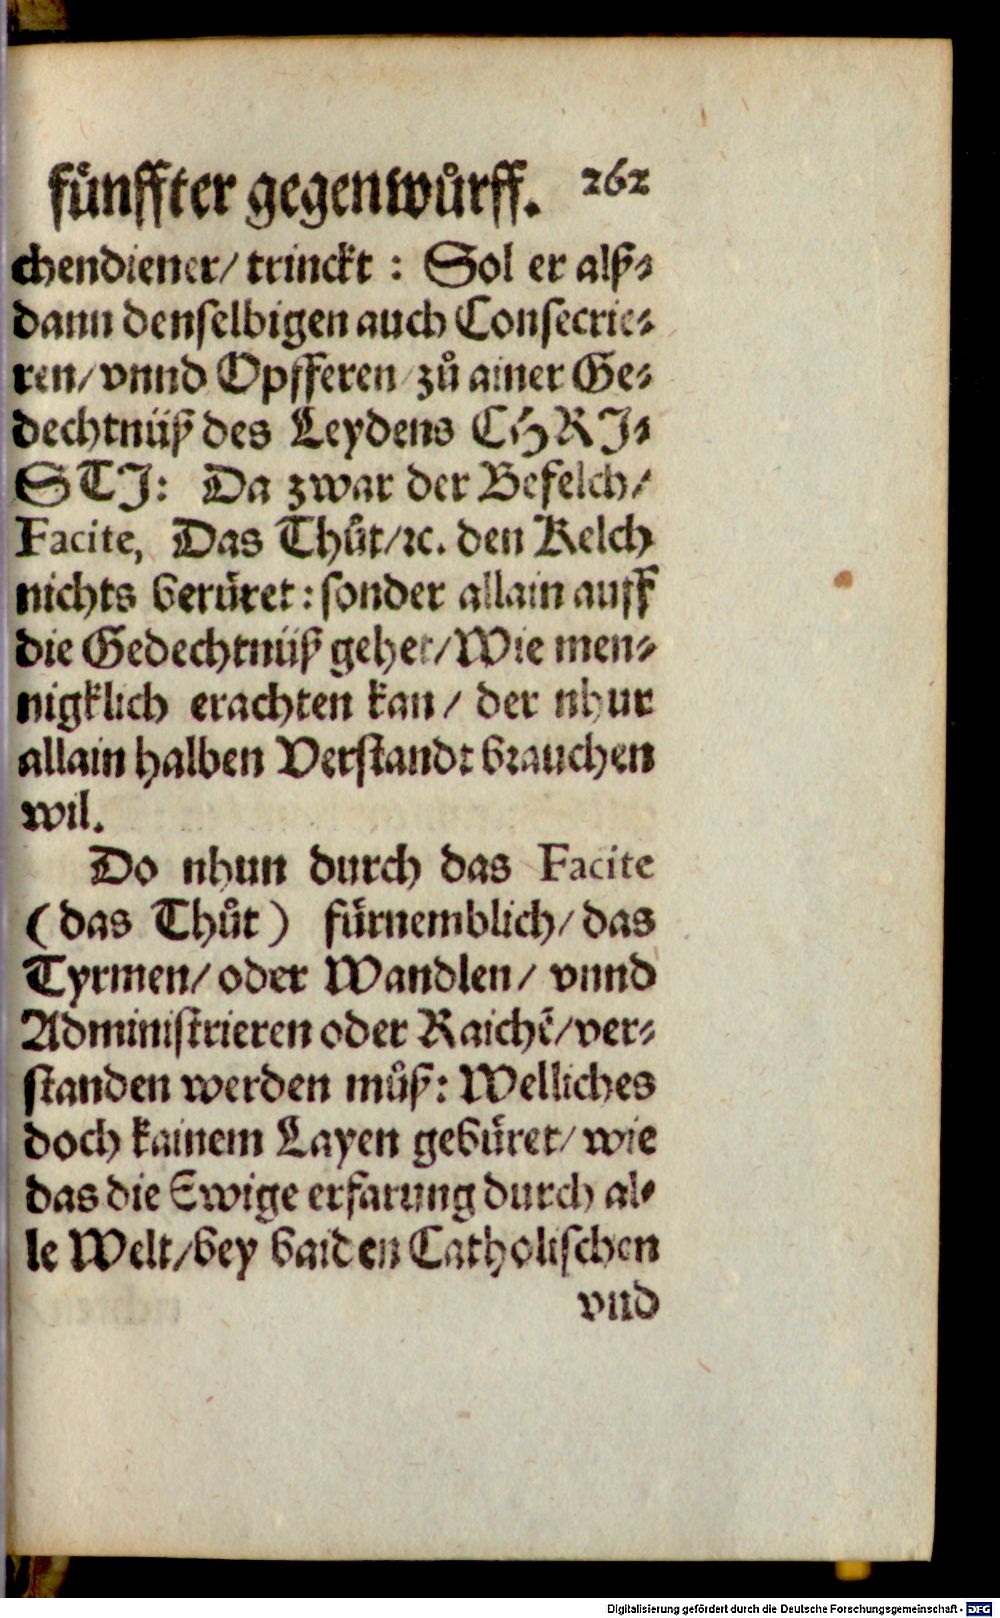 fünffter gegenwůrff. 262
chendiener/ trinckt : Sol er alß⸗
dann denselbigen auch Consecrie⸗
ren/ vnnd Opfferen zů ainer Ge⸗
dechtnüß des Leydens CHRJ⸗
STJ: Da zwar der Befelch/
Facite, Das Thůt/ꝛc. den Kelch
nichts berüret: sonder allain auff
die Gedechtnüß gehet/ Wie men⸗
nigklich erachten kan / der nhur
allain halben Verstandt brauchen
wil.
Do nhun durch das Facite
(das Thůt) fürnemblich/ das
Tyrmen/ oder Wandlen/ vnnd
Administrieren oder Raichẽ/ ver⸗
standen werden můß: Welliches
doch kainem Layen gebüret/ wie
das die Ewige erfarung durch al⸗
le Welt/ bey baiden Catholischen
vnd
Digitalisierung gefördert durch die Deutsche Forschungsgemeinschaft - DFG